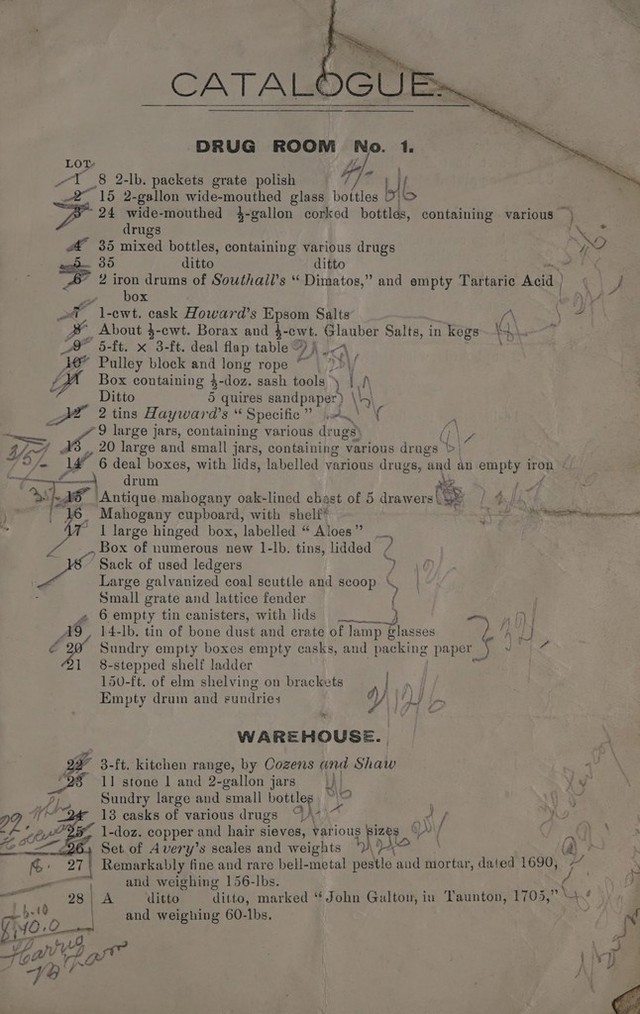 CATALOGUE.
DRUG ROOM No. 1.
LOT
1 8 2-lb. packets grate polish
2 15 2-gallon wide-mouthed glass bottles
3 24 wide-mouthed ½-gallon corked bottles, containing various
drugs
4 35 mixed bottles, containing various drugs
5 35 ditto ditto
6 2 iron drums of Southall's “Dimatos,” and empty Tartaric Acid
box
7 1-cwt. cask Howard's Epsom Salts
8 About ½-cwt. Borax and ½-cwt. Glauber Salts, in kegs
9 5-ft. × 3-ft. deal flap table
10 Pulley block and long rope
11 Box containing ½-doz. sash tools
Ditto 5 quires sandpaper
12 2 tins Hayward's “Specific”
9 large jars, containing various drugs
13 20 large and small jars, containing various drugs
14 6 deal boxes, with lids, labelled various drugs, and an empty iron
drum
15 Antique mahogany oak-lined chest of 5 drawers
16 Mahogany cupboard, with shelf
17 1 large hinged box, labelled “Aloes”
Box of numerous new 1-lb. tins, lidded
18 Sack of used ledgers
Large galvanized coal scuttle and scoop
Small grate and lattice fender
6 empty tin canisters, with lids
19 14-lb. tin of bone dust and crate of lamp glasses
20 Sundry empty boxes empty casks, and packing paper
21 8-stepped shelf ladder
150-ft. of elm shelving on brackets
Empty drum and sundries
WAREHOUSE.
22 3-ft. kitchen range, by Cozens and Shaw
23 11 stone 1 and 2-gallon jars
Sundry large and small bottles
24 13 casks of various drugs
25 1-doz. copper and hair sieves, various sizes
26 Set of Avery's scales and weights
27 Remarkably fine and rare bell-metal pestle and mortar, dated 1690,
and weighing 156-lbs.
28 A ditto ditto, marked “John Galton, in Taunton, 1705,”
and weighing 60-lbs.